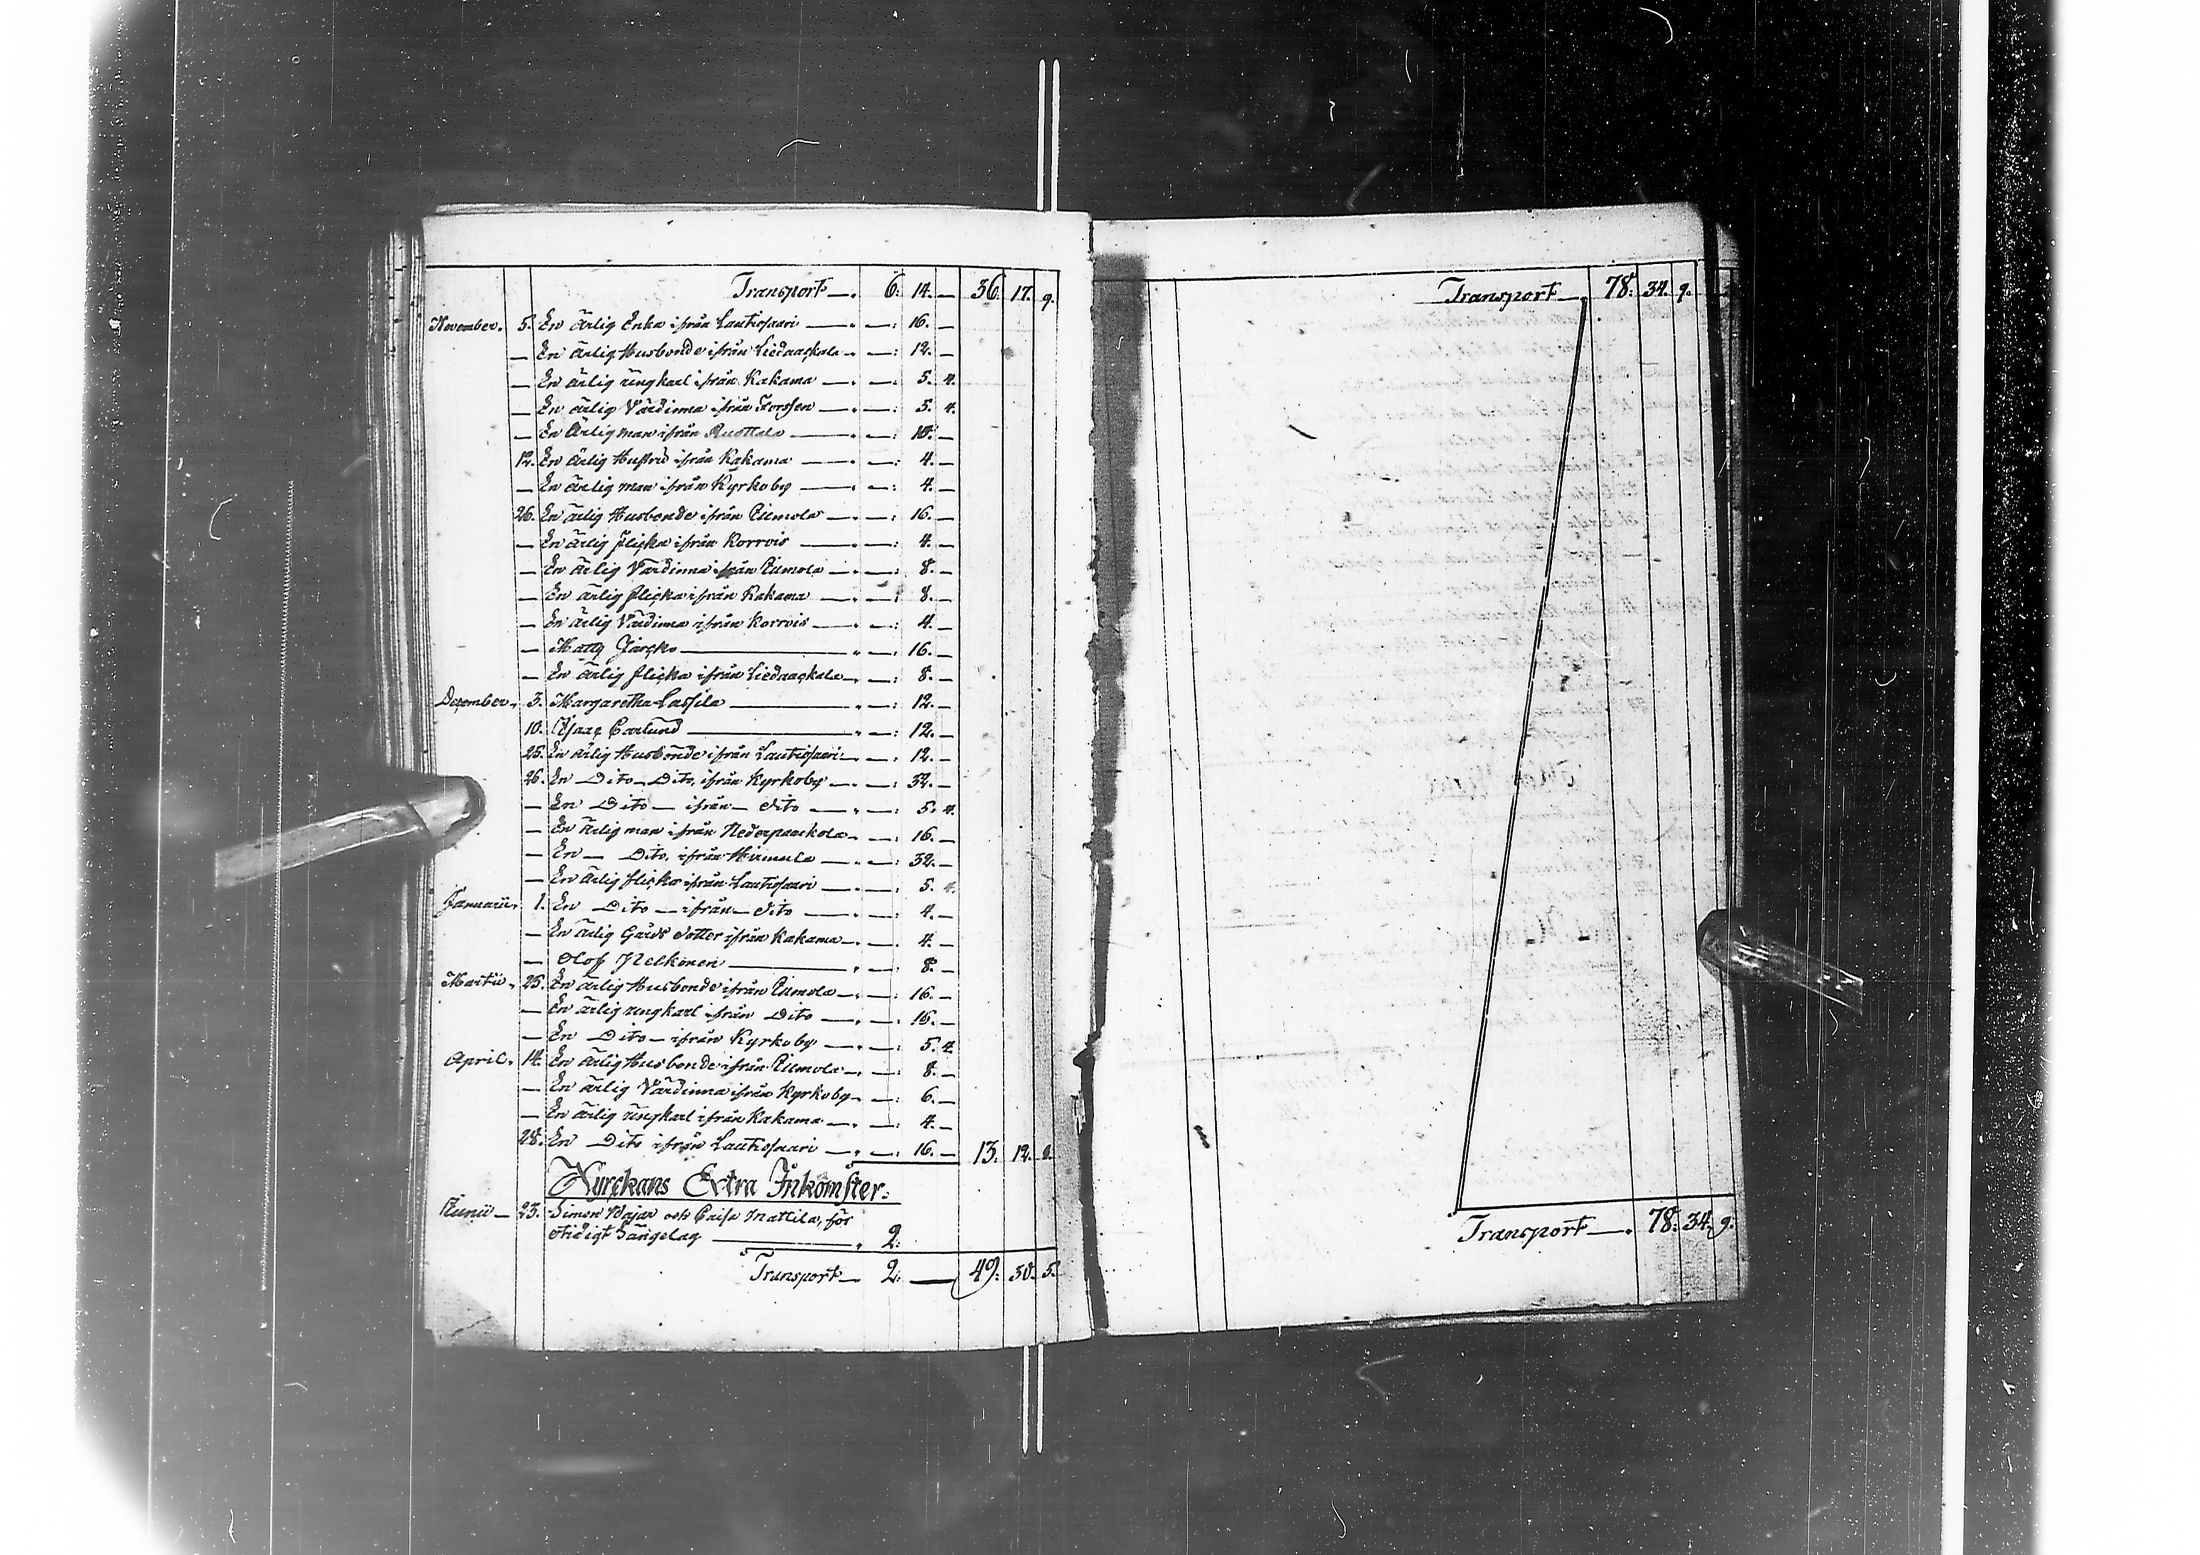 Transport — 6: 14. — 36. 17. 9.
November. 5. En ärlig Enka ifrån Lautiosaari — — : 16. —
— En ärlig Husbonde ifrån Liedaackala — — : 12. —
— En ärlig ungkarl ifrån Kakama — — : 5. 4.
— En ärlig Värdinna ifrån Forssen — — : 5. 4.
— En Ärlig man ifrån Ruottala — — : —
12. En ärlig Hustru ifrån Kakama — — : 4. —
— En ärlig man ifrån Kyrkoby — — : 4. —
26. En ärlig Husbonde ifrån — — : 16. —
— En ärlig flicka ifrån Korrvis — — : 4. —
— En ärlig Värdinna ifrån — — : 8. —
— En ärlig flicka ifrån Kakama — — : 8. —
— En ärlig Värdinna ifrån Korrvis — — : 4. —
— Matts — — : 16. —
— En ärlig flicka ifrån Liedaackala — — : 8. —
December. 3. Margaretha Lassila — — : 12. —
10. Isaac Carlund — — : 12. —
25. En ärlig Husbonde ifrån Lautiosaari — — : 12. —
26. En Dito — Dito, ifrån Kyrkoby — — : 32. —
— En Dito — ifrån — dito — — : 5. 4.
— En ärlig man ifrån Nederpaackola — — : 16. —
— En — Dito, ifrån Hirmula — — : 32. —
— En ärlig flicka ifrån Lautiosaari — — : 5. 4.
Januarii. 1. En Dito — ifrån — dito — — : 4. —
— En ärlig Gårds dotter ifrån Kakama — — : 4. —
— Olof Pelkonen — — : 8. —
Martii. 25. En ärlig Husbonde ifrån — — : 16. —
— En ärlig ungkarl ifrån Dito — — : 16. —
— En Dito — ifrån Kyrkoby — — : 5. 4.
April. 14. En ärlig Husbonde ifrån — — : 8. —
— En ärlig Värdinna ifrån Kyrkoby — — : 6. —
— En ärlig ungkarl ifrån Kakama — — : 4. —
28. En Dito ifrån Lautiosaari — — : 16. — 13. 12. 8.
Kyrckans Extra Inkomster.
Junii — 23. Simon Pajar och Caisa Mattila, för
otidigt Sängelag — 2:
Transport — 2: — 49: 30. 5.
Transport — 78: 34. 9.
Transport — 78: 34. 9.